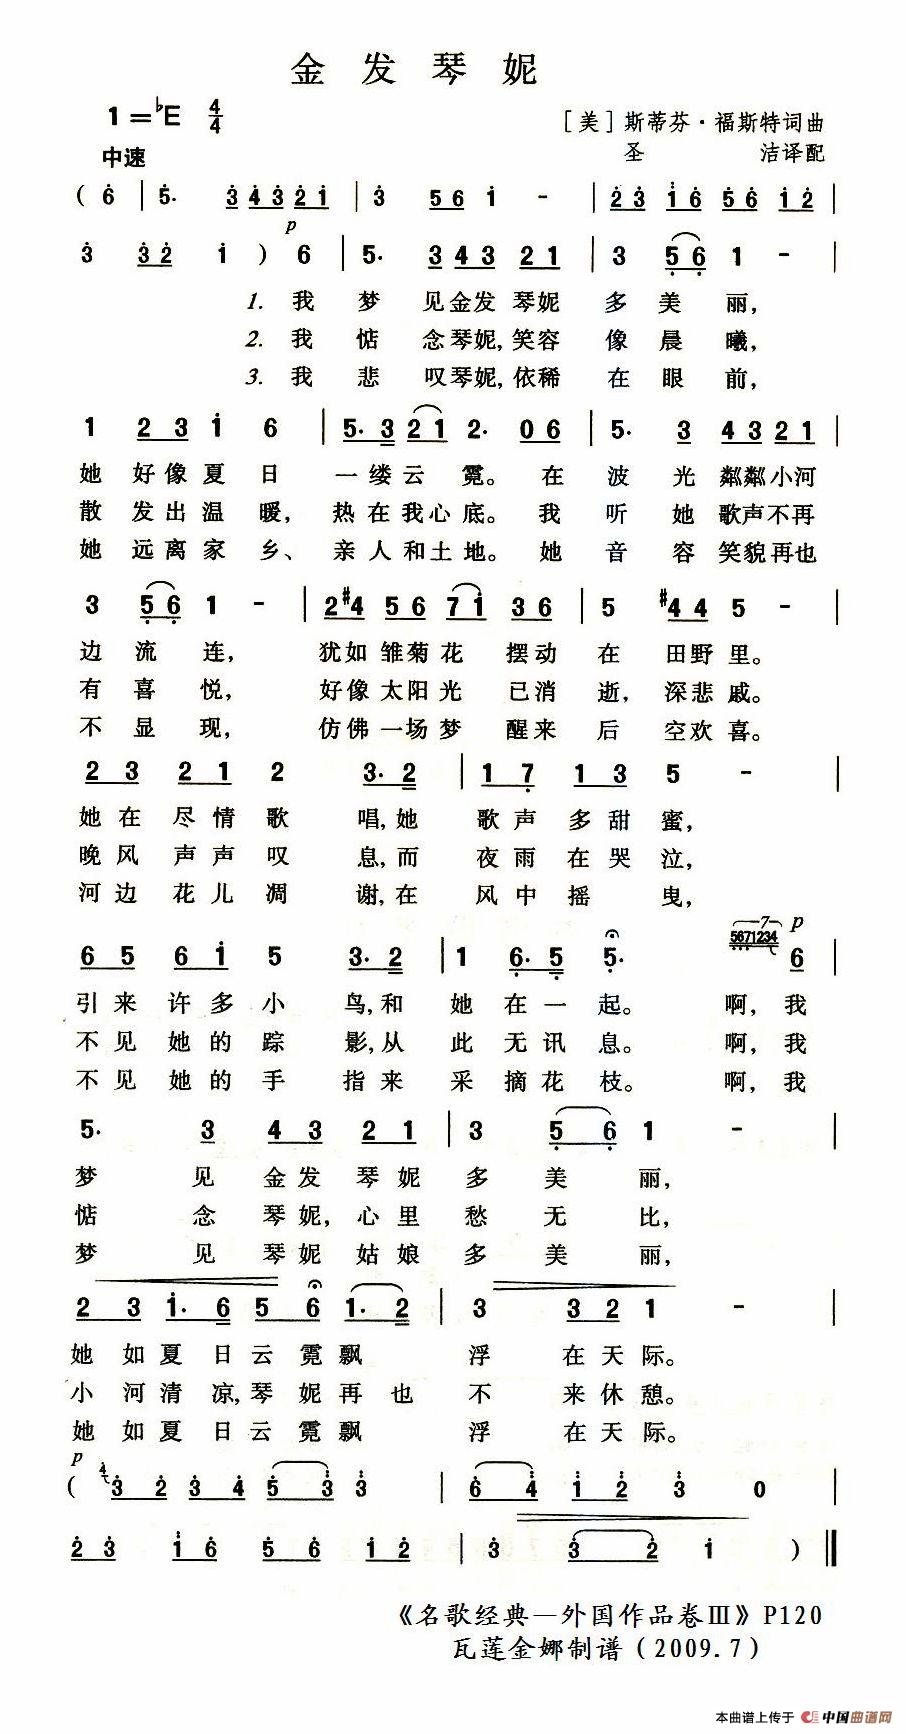 金发琴妮
1=♭E 4/4
[美]斯蒂芬·福斯特词曲
中速
圣 洁译配
(6 | 5· 3 4 3 2 1 | 3 5 6 1 - | 2 3 1 6 5 6 1 2 |
p
3 3 2 1 ) 6 | 5· 3 4 3 2 1 | 3 5 6 1 - |
1. 我 梦 见金发 琴妮 多 美 丽,
2. 我 惦 念琴妮,笑容 像 晨 曦,
3. 我 悲 叹琴妮,依稀 在 眼 前,
1 2 3 1 6 | 5· 3 2 1 2· 0 6 | 5· 3 4 3 2 1 |
她 好像夏 日 一缕云 霓。 在 波 光 粼粼小河
散 发出温 暖, 热在我心 底。 我 听 她 歌声不再
她 远离家 乡、 亲人和土 地。 她 音 容 笑貌再也
3 5 6 1 - | 2 #4 5 6 7 1 3 6 | 5 #4 4 5 - |
边 流 连, 犹如雏菊花 摆动 在 田野里。
有 喜 悦, 好像太阳光 已消 逝, 深悲戚。
不 显 现, 仿佛一场梦 醒来 后 空欢喜。
2 3 2 1 2 3· 2 | 1 7 1 3 5 - |
她在 尽情歌 唱,她 歌声多甜 蜜,
晚风 声声叹 息,而 夜雨在哭 泣,
河边 花儿凋 谢,在 风中摇 曳,
7 p
5671234
6 5 6 1 5 3· 2 | 1 6· 5 5· 6 |
引来 许多小 鸟,和 她 在一 起。 啊,我
不见 她的踪 影,从 此 无讯 息。 啊,我
不见 她的手 指来 采 摘花 枝。 啊,我
5· 3 4 3 2 1 | 3 5 6 1 - |
梦 见 金发 琴妮 多 美 丽,
惦 念 琴妮, 心里 愁 无 比,
梦 见 琴妮 姑娘 多 美 丽,
2 3 1· 6 5 6 1· 2 | 3 3 2 1 - |
她 如夏 日云 霓飘 浮 在天 际。
小 河清 凉,琴 妮再也 不 来休 憩。
她 如夏 日云 霓飘 浮 在天 际。
p
( 4 3 2 3 4 5 3 3 | 6 4 1 2 3 0 |
2 3 1 6 5 6 1 2 | 3 3 2 1 ) ‖
《名歌经典—外国作品卷Ⅲ》P120
瓦莲金娜制谱(2009.7)
本曲谱上传于 中国曲谱网
www.qupu123.com